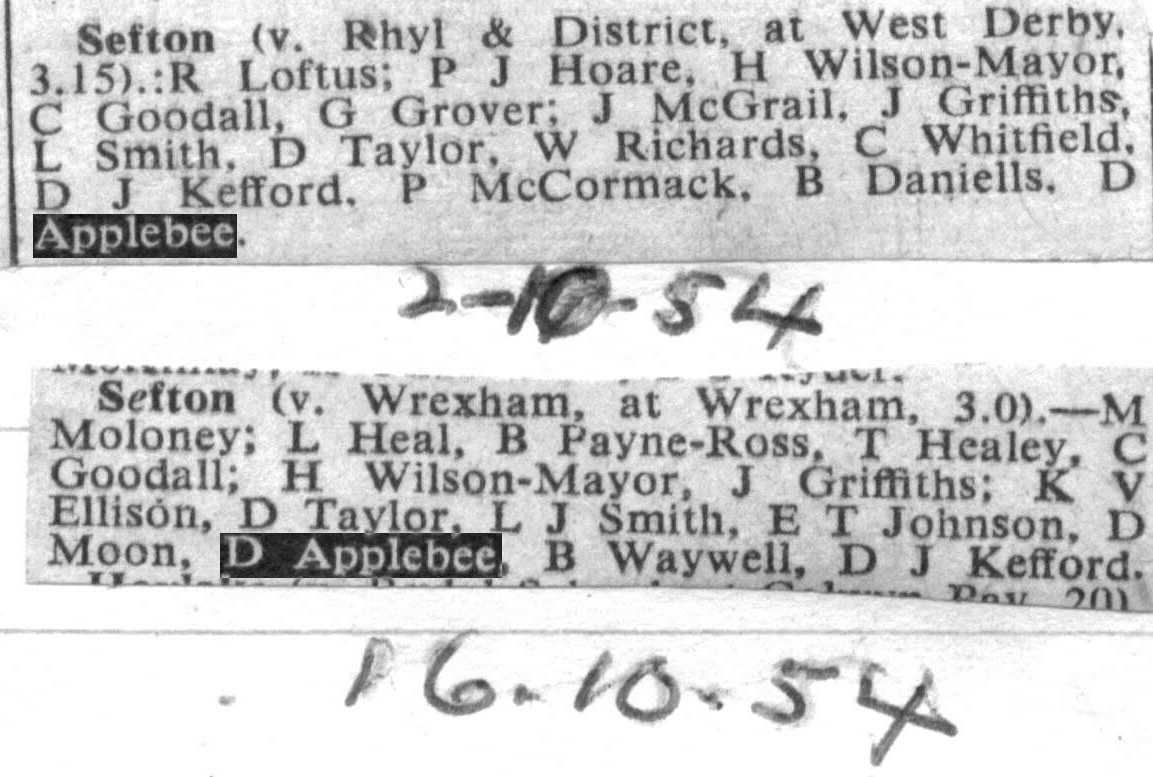 Sefton (v. Rhyl & District, at West Derby,
3.15).:R Loftus; P J Hoare, H Wilson-Mayor,
C Goodall, G Grover; J McGrail, J Griffiths,
L Smith, D Taylor, W Richards, C Whitfield,
D J Kefford, P McCormack, B Daniells, D
Applebee.
2-10-54
Sefton (v. Wrexham, at Wrexham, 3.0).—M
Moloney; L Heal, B Payne-Ross, T Healey, C
Goodall; H Wilson-Mayor, J Griffiths; K V
Ellison, D Taylor, L J Smith, E T Johnson, D
Moon, D Applebee, B Waywell, D J Kefford.
16-10-54